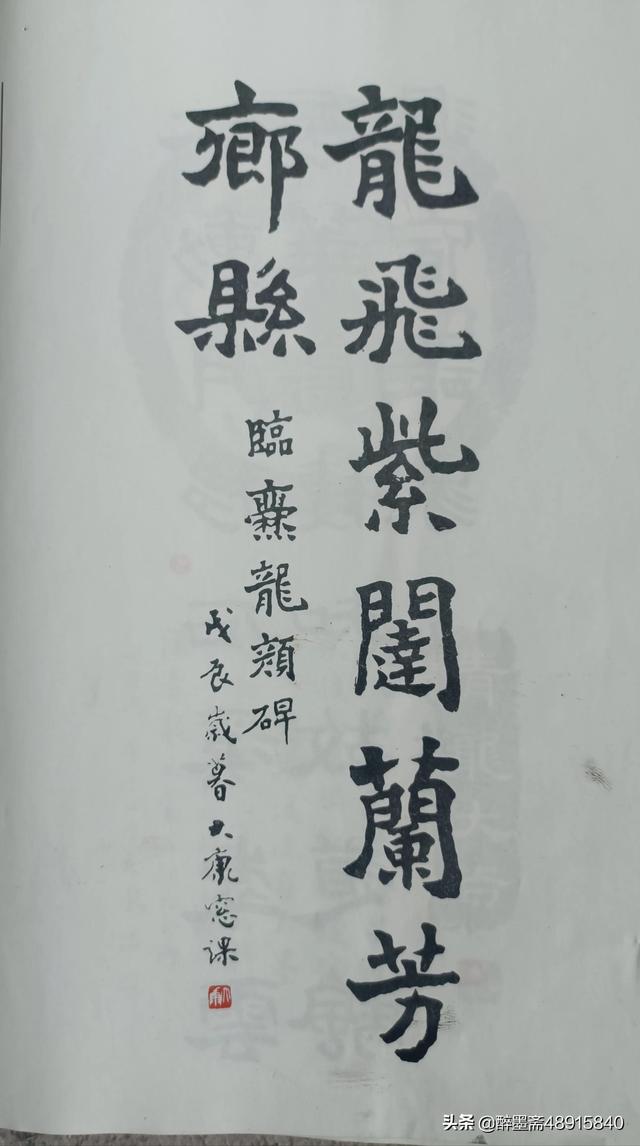 龍飛紫闥蘭芳
鄉縣
臨爨龍顏碑
戊辰歲暮大康窓課
头条 @醉墨斋48915840